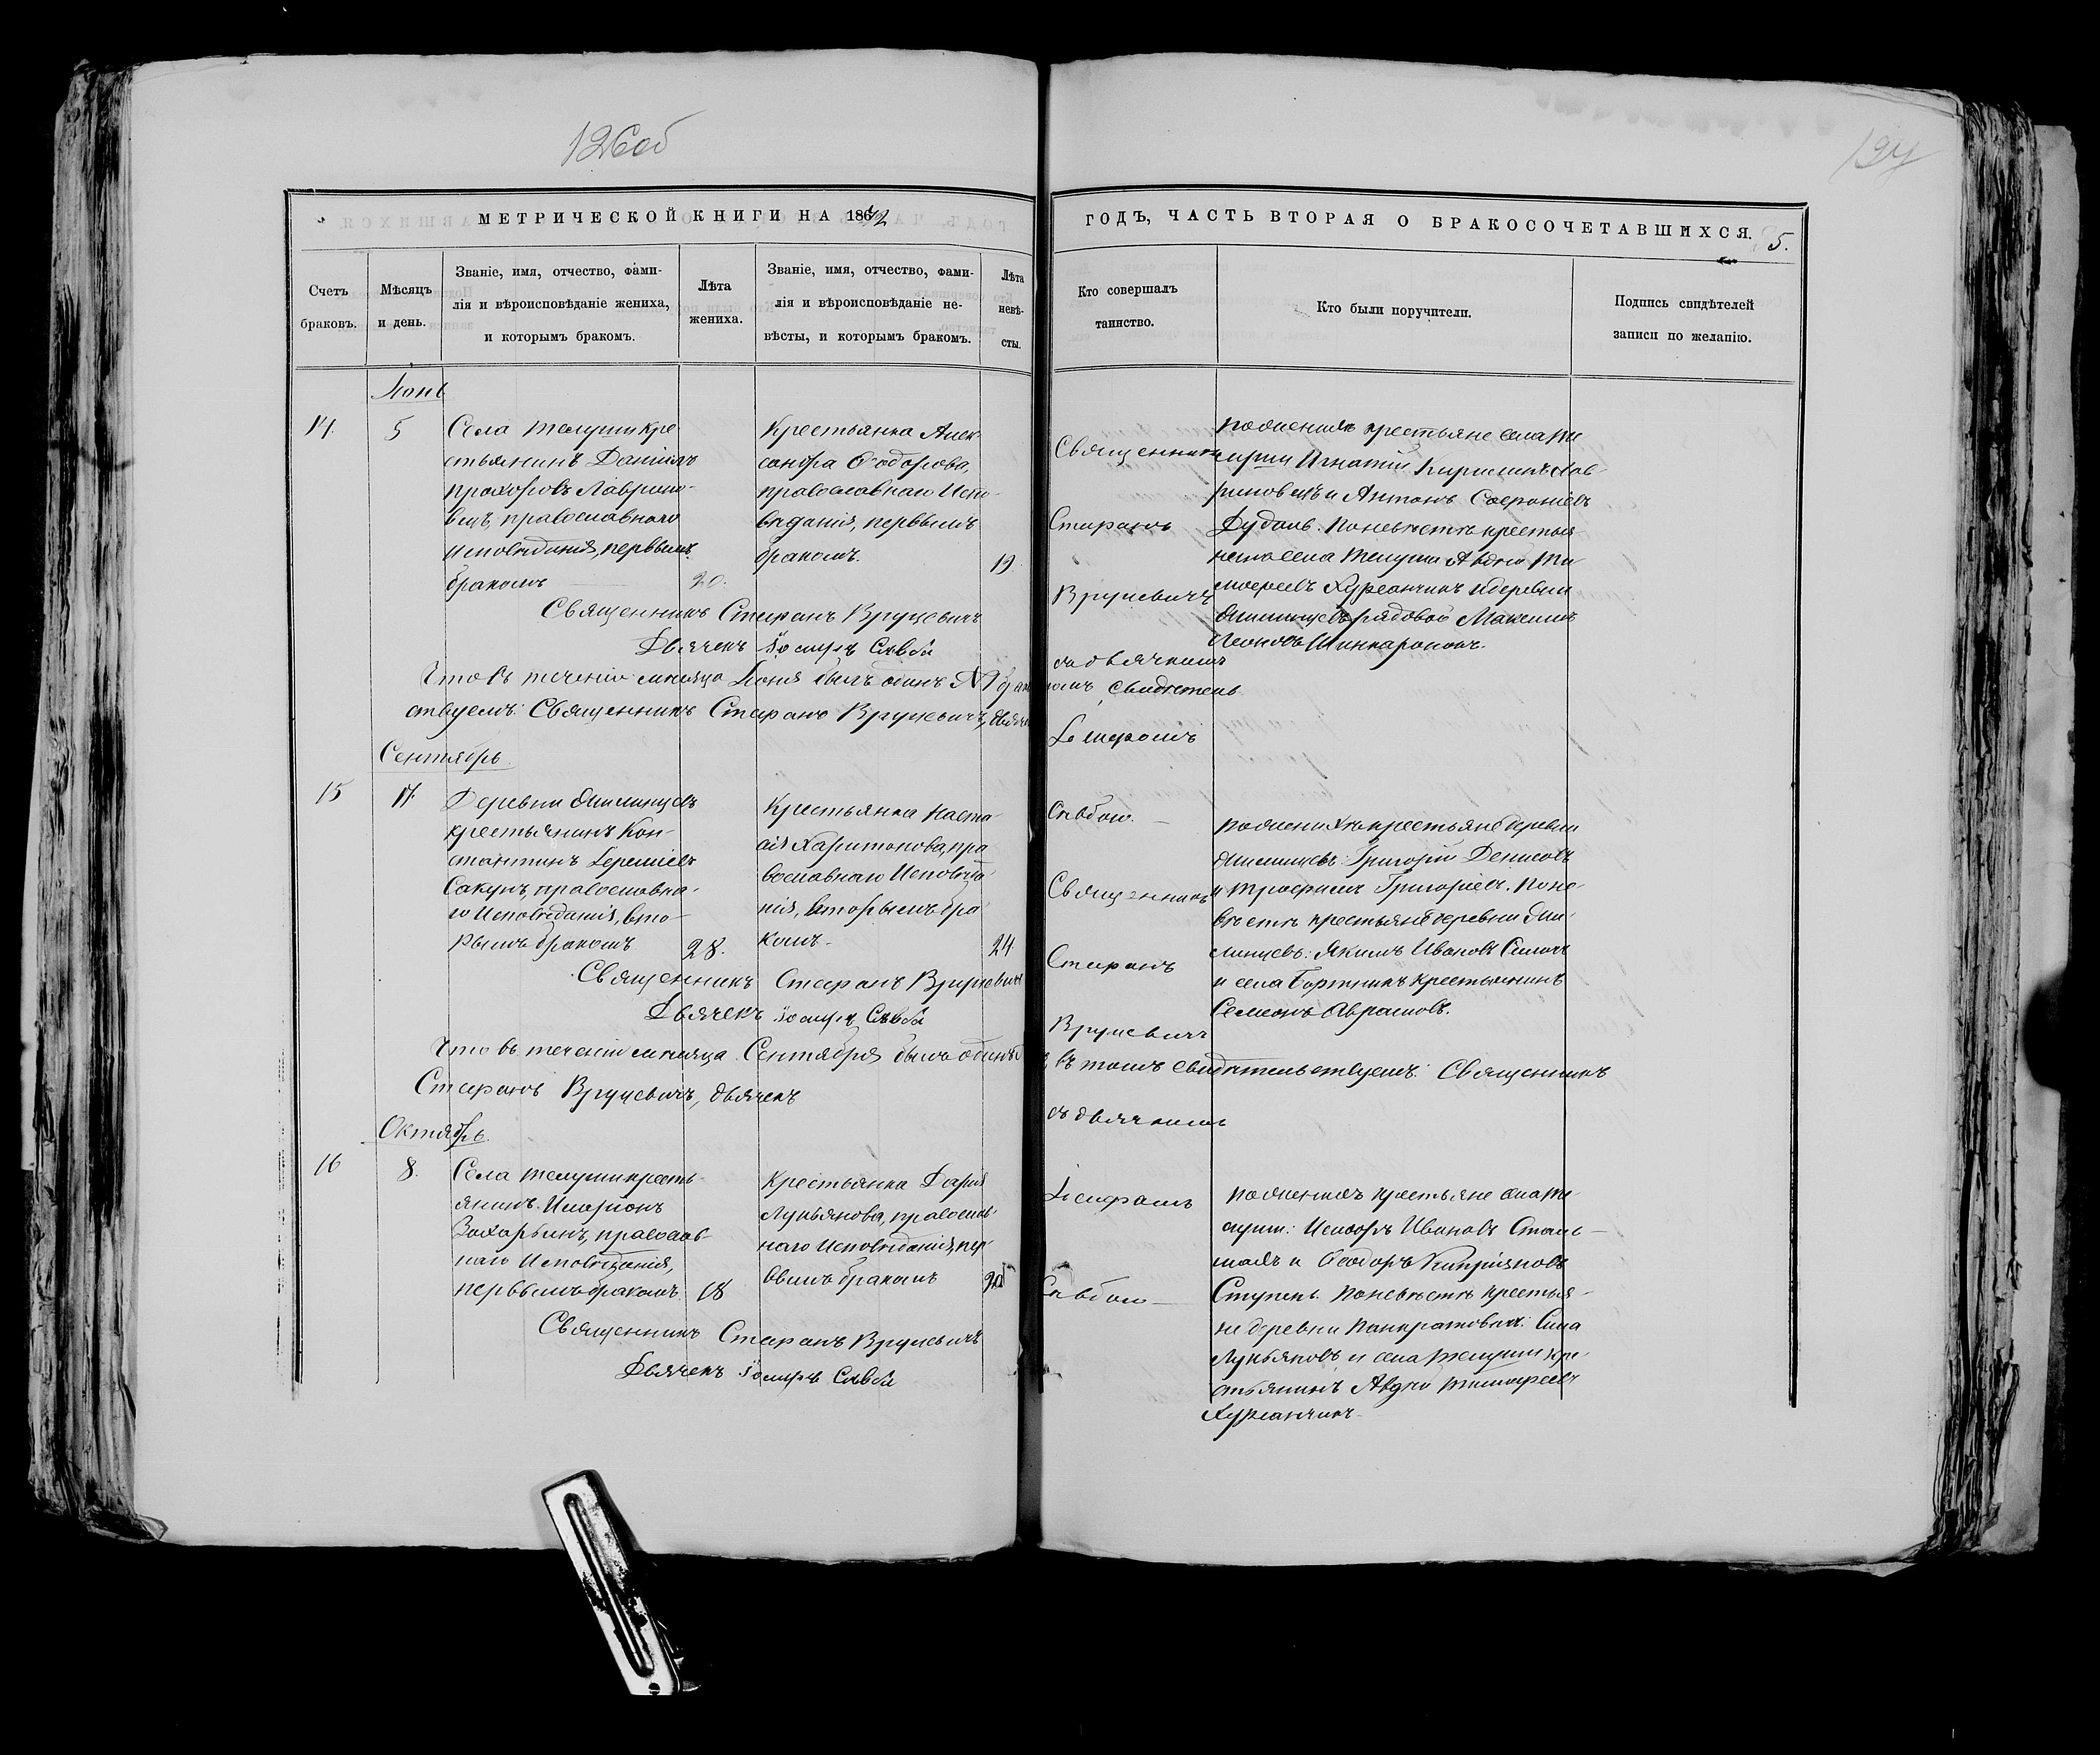 126об
127
МЕТРИЧЕСКОЙ КНИГИ НА 1872
ГОДЪ, ЧАСТЬ ВТОРАЯ О БРАКОСОЧЕТАВШИХСЯ.
5.
Счетъ браковъ.
Мѣсяцъ и день.
Званіе, имя, отчество, фами-
лія и вѣроисповѣданіе жениха,
и которымъ бракомъ.
Лѣта жениха.
Званіе, имя, отчество, фами-
лія и вѣроисповѣданіе не-
вѣсты, и которымъ бракомъ.
Лѣта невѣ-
сты.
Кто совершалъ
таинство.
Кто были поручители.
Подпись свидѣтелей
записи по желанію.
Іюнь
14.
5
Села Телуши кре
стьянинъ Даніилъ
Прохоровъ Лаврино-
вичъ, православнаго
исповѣданія, первымъ
бракомъ
20.
Крестьянка Алек-
сандра Ѳеодорова,
православнаго Испо-
вѣданія, первымъ
бракомъ.
19.
Священникъ
Стефанъ
Вруцевичъ
съ дьячкомъ
Іосифомъ
Савбою.
по женихѣ крестьяне села Те
луши Игнатій Кириловъ Лав-
риновичъ и Антонъ Софроніевъ
Дудаль. По невѣстѣ крестья
не села Телуши Авдѣй Ти
мофеевъ Хурсанчикъ и деревни
рядовой Максимъ
Леоновъ
Священникъ Стефанъ Вруцевичъ
Дьячекъ Іосифъ Савба
Что въ теченіе мѣсяца Іюня былъ одинъ №1 бра
комъ свидѣтель
ствуемъ: Священникъ Стефанъ Вруцевичъ, дьяче
Сентябрь.
15
17.
Деревни
крестьянинъ Кон-
стантинъ Іереміевъ
Сакунъ, православна-
го Исповѣданія, вто-
рымъ бракомъ
28.
Крестьянка Наста-
сія Харитонова, пра
вославнаго Исповѣда-
нія, вторымъ бра-
комъ.
24
Священникъ
Стефанъ
Вруцевичъ
съ дьячкомъ
Іосифомъ
Савбою
по женихѣ крестьяне деревни
Григорій Денисовъ
и Трофимъ Григоріевъ. По не-
вѣстѣ крестьяне деревни
Якимъ Ивановъ
и села Бортникъ крестьянинъ
Семенъ Аврамовъ.
Священникъ Стефанъ Вруцевичъ
Дьячекъ Іосифъ Савба
Что въ теченіи мѣсяца Сентября былъ одинъ
въ томъ свидѣтельствуемъ: Священникъ
Стефанъ Вруцевичъ, дьячекъ
Октябрь.
16
8.
Села Телуши кресть-
янинъ Иларіонъ
Захарьинъ, православ-
наго Исповѣданія,
первымъ бракомъ.
18
Крестьянка Дарія
Лукьянова, православ-
наго Исповѣданія, пер-
вымъ бракомъ
по женихѣ крестьяне села Те-
луши: Исидоръ Ивановъ
и Ѳеодоръ Кипріяновъ
Ступень. По невѣстѣ крестья-
не деревни Панкратовичъ: Сила
Лукьяновъ и села Телуши кре-
стьянинъ Авдѣй Тимофеевъ
Хурсанчикъ.
Священникъ Стефанъ Вруцевичъ
Дьячекъ Іосифъ Савба